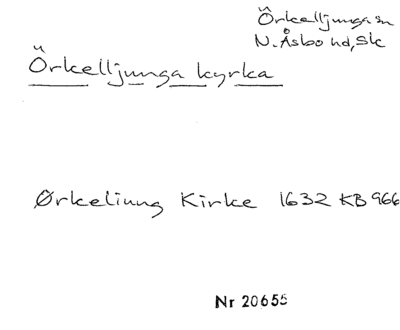 Örkelljunga sn
N. Åsbo hd, Sk
Örkelljunga kyrka
Ørkeliung Kirke 1632 KB 966
Nr 20655